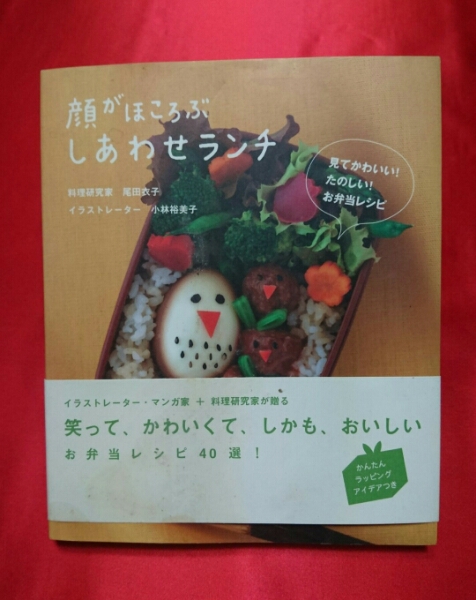 顔がほころぶ
しあわせランチ
料理研究家 尾田衣子
イラストレーター 小林裕美子
見てかわいい!
たのしい!
お弁当レシピ
イラストレーター・マンガ家 + 料理研究家が贈る
笑って、かわいくて、しかも、おいしい
お弁当レシピ40選!
かんたん
ラッピング
アイデアつき